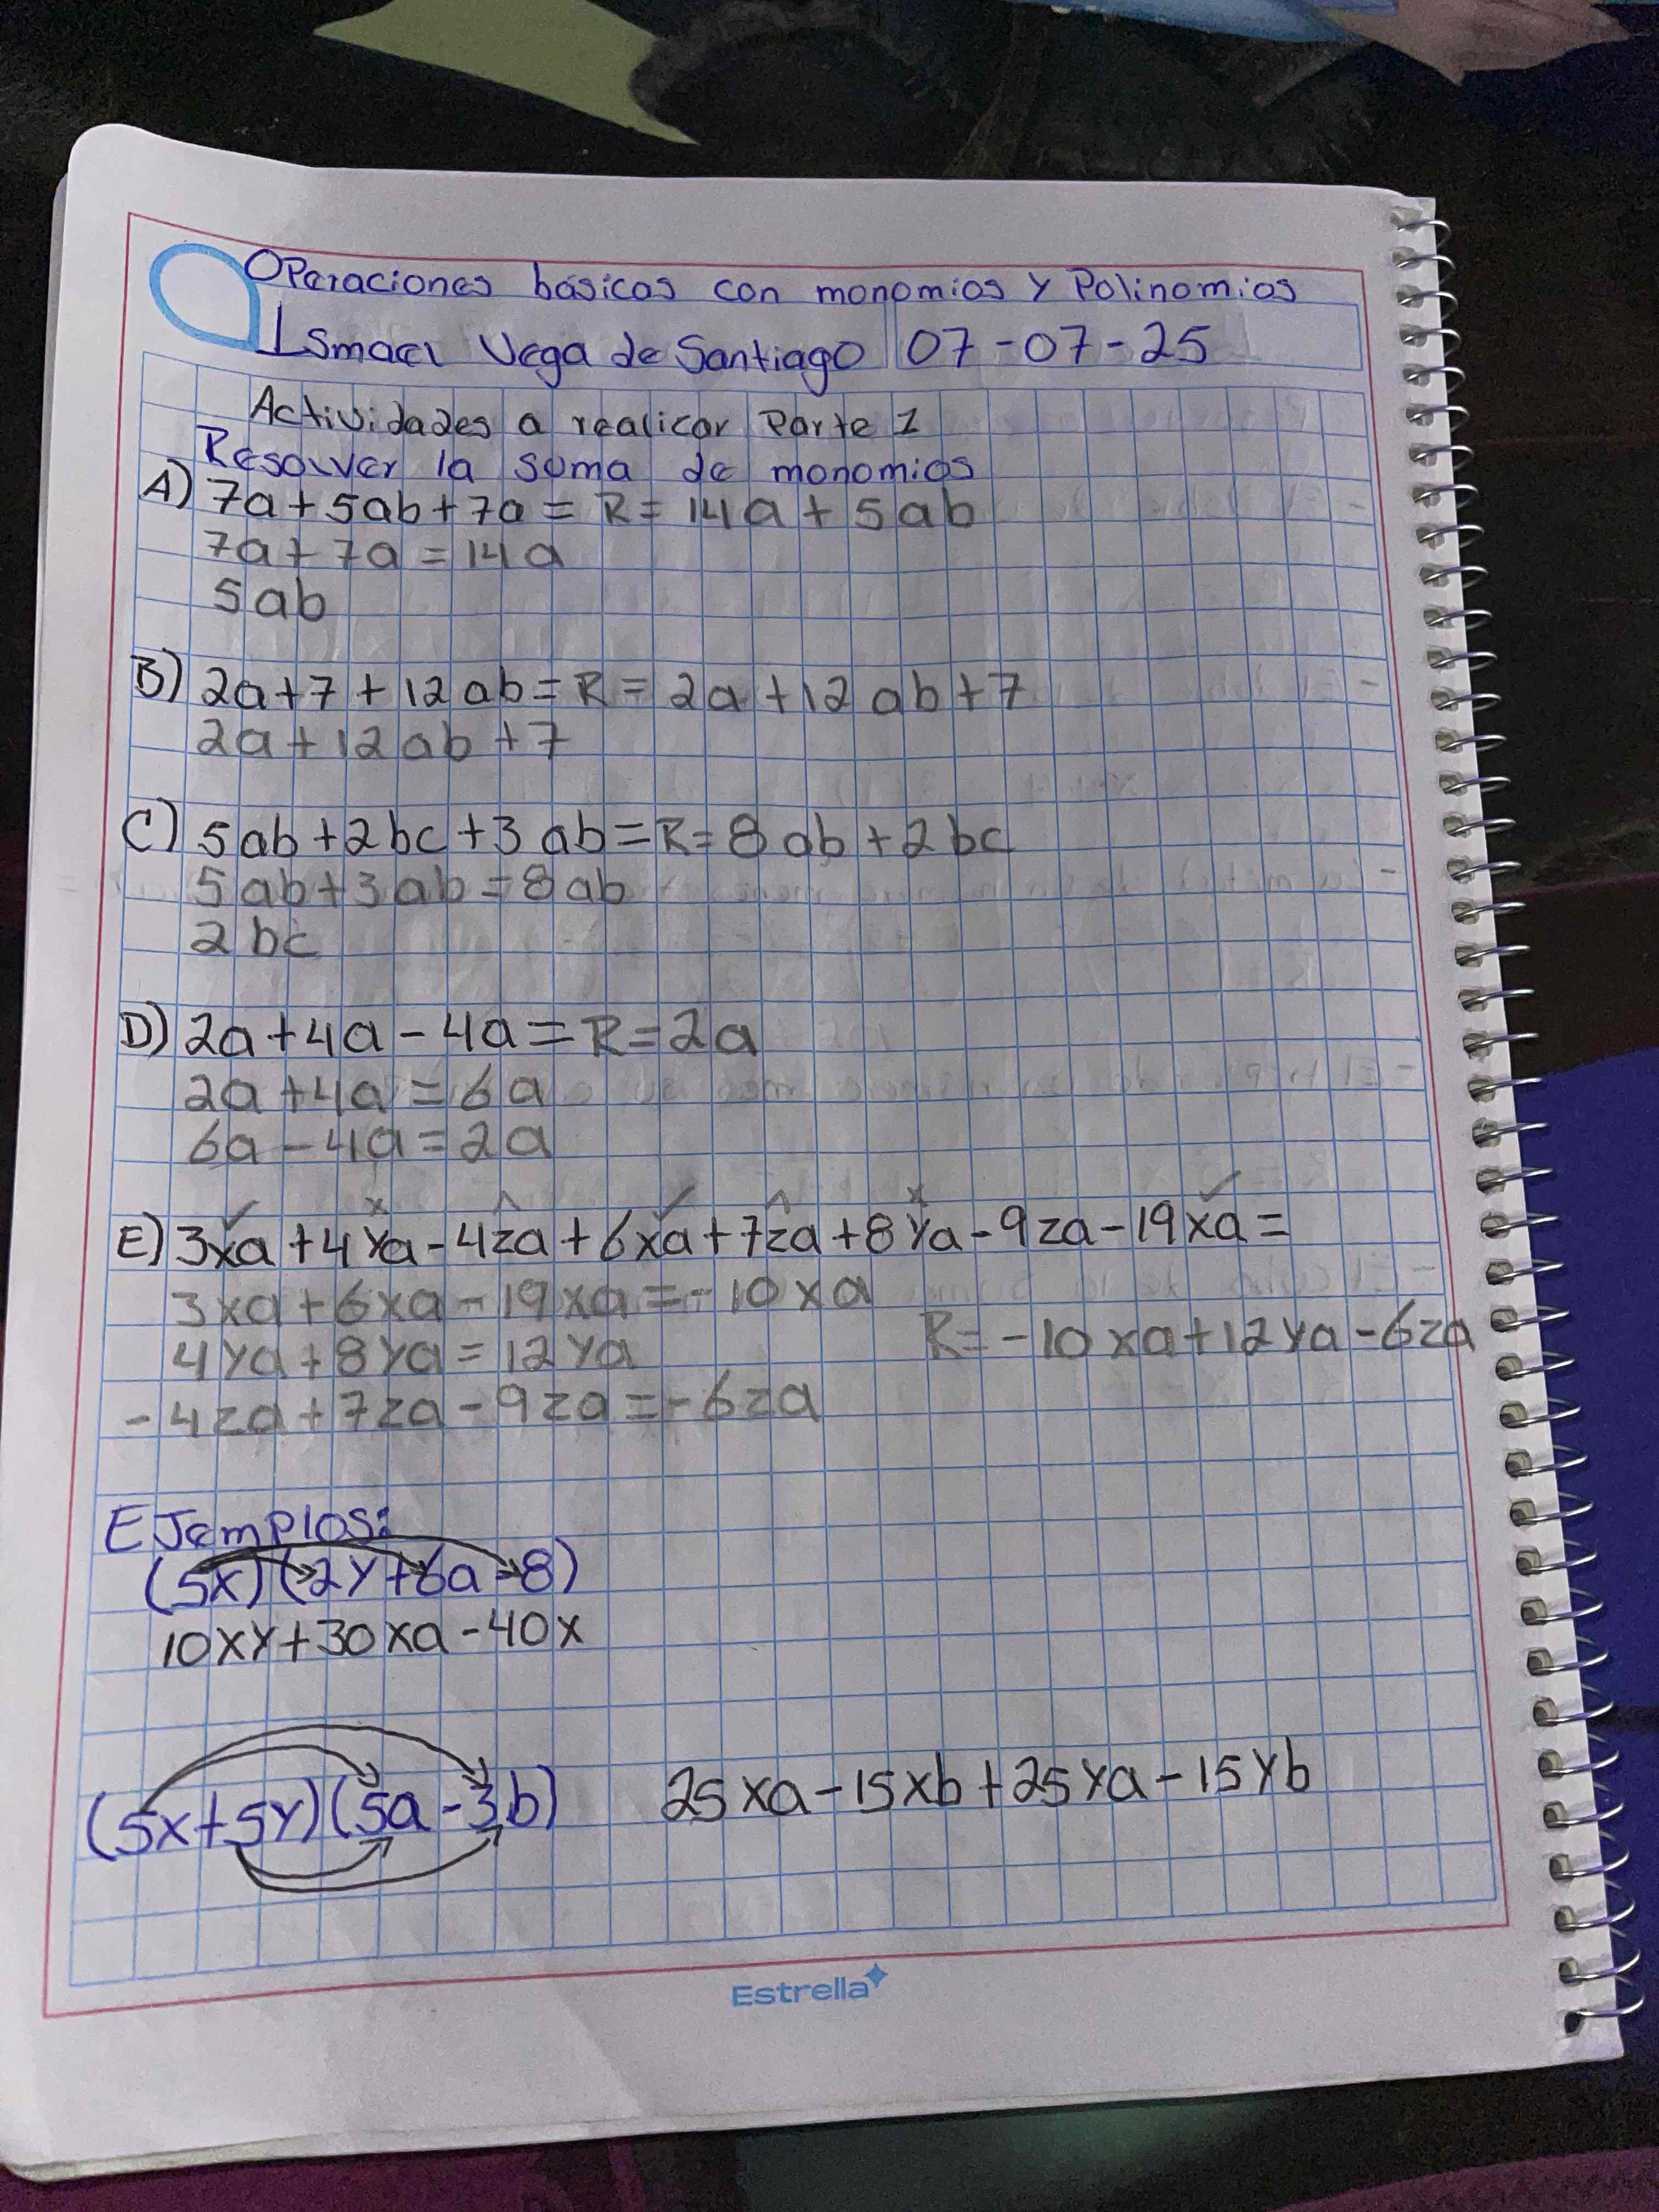 Operaciones básicas con monomios y Polinomios
Ismael Vega de Santiago 07-07-25
Actividades a realicar Parte 1
Resolver la suma de monomios
A) 7a+5ab+7a= R= 14a+5ab
7a+7a=14a
5ab
B) 2a+7+12ab= R= 2a+12ab+7
2a+12ab+7
C) 5ab+2bc+3ab= R= 8ab+2bc
5ab+3ab=8ab
2bc
D) 2a+4a-4a= R= 2a
2a+4a=6a
6a-4a=2a
E) 3xa+4ya-4za+6xa+7za+8ya-9za-19xa=
3xa+6xa-19xa=-10xa
R= -10xa+12ya-6za
4ya+8ya=12ya
-4za+7za-9za=-6za
Ejemplos:
(5x)(2y+6a-8)
10xy+30xa-40x
(5x+5y)(5a-3b) 25xa-15xb+25ya-15yb
Estrella